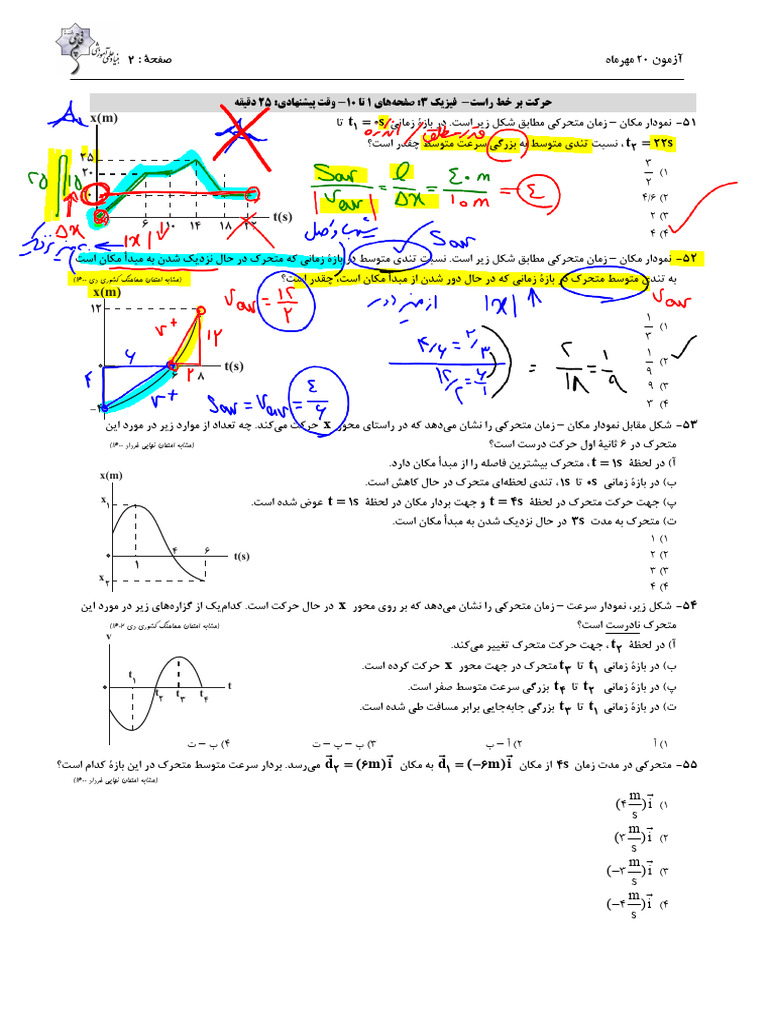 آزمون ۲۰ مهرماه
صفحهٔ : ۲
بنیاد علمی آموزشی
حرکت بر خط راست – فیزیک ۳: صفحه‌های ۱ تا ۱۰ – وقت پیشنهادی: ۲۵ دقیقه
۵۱– نمودار مکان – زمان متحرکی مطابق شکل زیر است. در بازهٔ زمانی t₁ = ۰s تا
t₂ = ۲۲s ، نسبت تندی متوسط به بزرگی سرعت متوسط چقدر است؟
۱) ۳/۲
۲) ۴/۶
۳) ۲
۴) ۴
x(m)
۲۵
۲۰
۱۰
۶ ۱۰ ۱۴ ۱۸ ۲۲ t(s)
Sav / |Vav| = l / Δx = ۴۰m / ۱۰m = ۴
۲۵ ۱۵
Δx
|x| ↓
Sav
۵۲– نمودار مکان – زمان متحرکی مطابق شکل زیر است. نسبت تندی متوسط در بازهٔ زمانی که متحرک در حال نزدیک شدن به مبدأ مکان است
به تندی متوسط متحرک در بازهٔ زمانی که در حال دور شدن از مبدأ مکان است، چقدر است؟
(مشابه امتحان هماهنگ کشوری دی ۱۴۰۰)
۱) ۱/۳
۲) ۱/۹
۳) ۹
۴) ۳
x(m)
۱۲
۰
−۴
۶ ۸ t(s)
Vav = ۱۲/۲
|x| ↑
Vav
v+ ۱۲
۶ ۲
۴ v+
Sav = Vav = ۴/۶
۴/۶ = ۲/۳
۱۲/۲ = ۶/۱
= ۲/۱۸ = ۱/۹
۵۳– شکل مقابل نمودار مکان – زمان متحرکی را نشان می‌دهد که در راستای محور x حرکت می‌کند. چه تعداد از موارد زیر در مورد این
متحرک در ۶ ثانیهٔ اول حرکت درست است؟
(مشابه امتحان نهایی خرداد ۱۴۰۰)
آ) در لحظهٔ t = ۱s ، متحرک بیشترین فاصله را از مبدأ مکان دارد.
ب) در بازهٔ زمانی ۰s تا ۱s، تندی لحظه‌ای متحرک در حال کاهش است.
پ) جهت حرکت متحرک در لحظهٔ t = ۴s و جهت بردار مکان در لحظهٔ t = ۱s عوض شده است.
ت) متحرک به مدت ۳s در حال نزدیک شدن به مبدأ مکان است.
۱) ۱
۲) ۲
۳) ۳
۴) ۴
x(m)
x₁
۰
x₂
۱ ۴ ۶ t(s)
۵۴– شکل زیر، نمودار سرعت – زمان متحرکی را نشان می‌دهد که بر روی محور x در حال حرکت است. کدام‌یک از گزاره‌های زیر در مورد این
متحرک نادرست است؟
(مشابه امتحان هماهنگ کشوری دی ۱۴۰۲)
آ) در لحظهٔ t₂ ، جهت حرکت متحرک تغییر می‌کند.
ب) در بازهٔ زمانی t₁ تا t₃ متحرک در جهت محور x حرکت کرده است.
پ) در بازهٔ زمانی t₂ تا t₴ بزرگی سرعت متوسط صفر است.
ت) در بازهٔ زمانی t₁ تا t₃ بزرگی جابه‌جایی برابر مسافت طی شده است.
v
۰
t₁ t₂ t₃ t₄ t
۱) آ ۲) آ – ب ۳) ب – پ – ت ۴) ب – ت
۵۵– متحرکی در مدت زمان ۴s از مکان d⃗₁ = (−۶m)i⃗ به مکان d⃗₂ = (۶m)i⃗ می‌رسد. بردار سرعت متوسط متحرک در این بازه کدام است؟
(مشابه امتحان نهایی خرداد ۱۴۰۰)
۱) (۴ m/s)i⃗
۲) (۳ m/s)i⃗
۳) (−۳ m/s)i⃗
۴) (−۴ m/s)i⃗